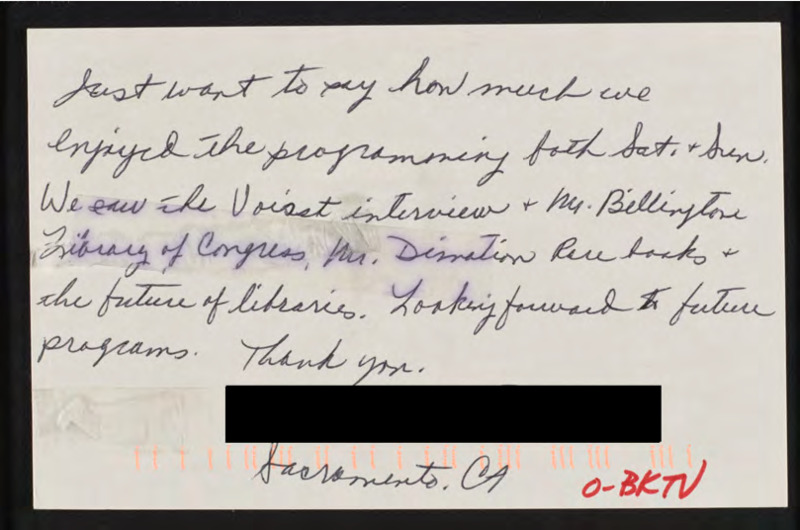 Just want to say how much we
enjoyed the programming both Sat. + Sun.
We saw the Voisst interview + Mr. Billington
Library of Congress, Mr. Dimation Rare books +
the future of libraries. Looking forward to future
programs. Thank you.
Sacramento, CA
O-BKTV